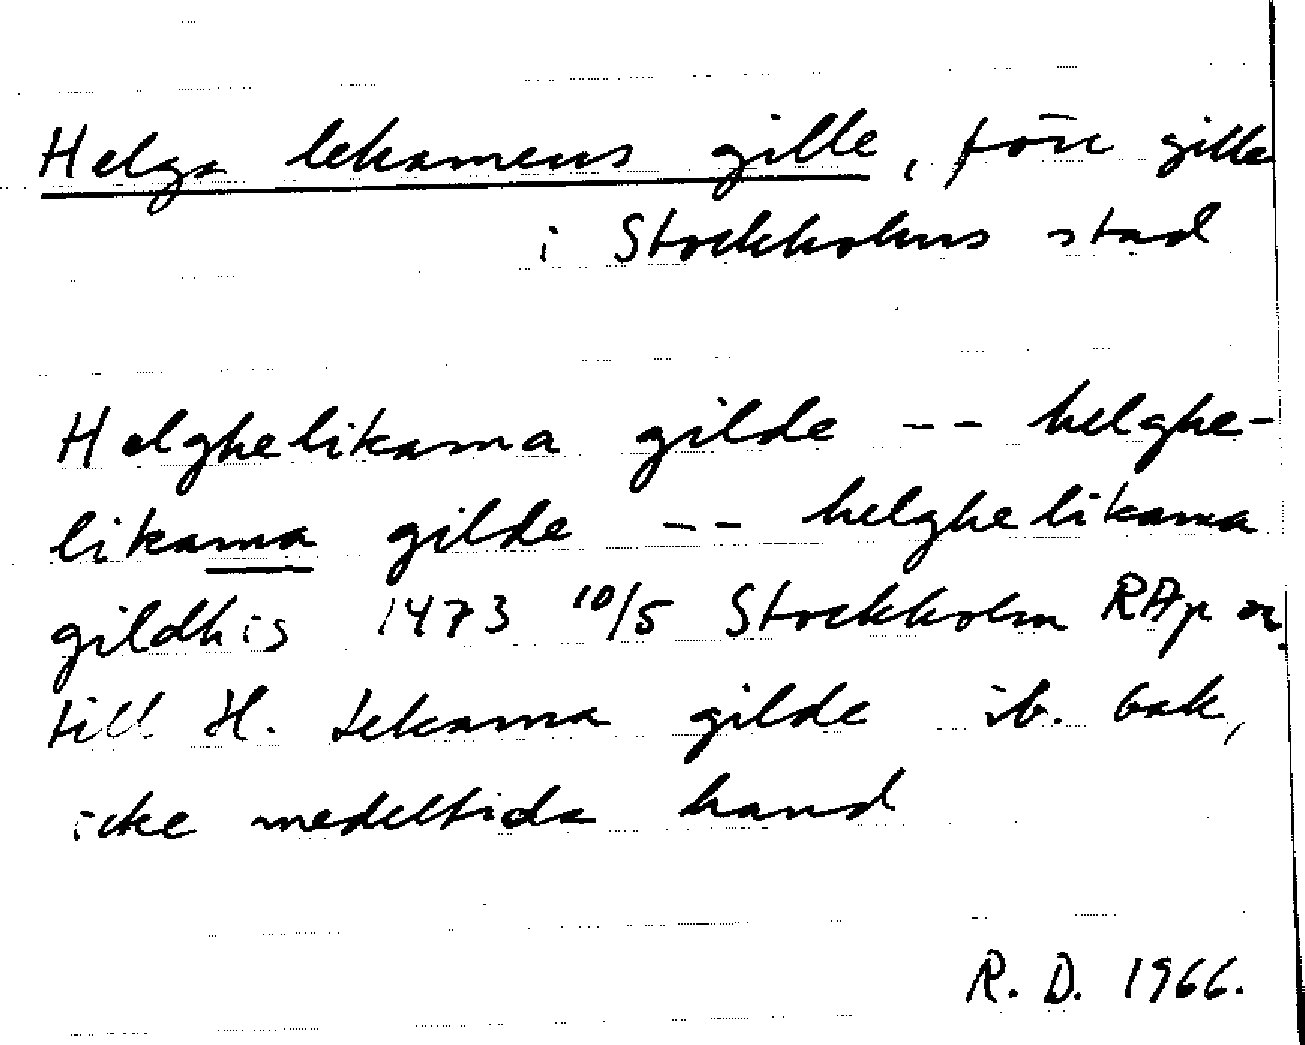 Helga lekamens gille, förr gille
i Stockholms stad
Helghelikama gilde -- helghe-
likama gilde -- helghelikama
gildhis 1473 10/5 Stockholm RAp or.
till H. Lekama gilde ib. bak,
icke medeltida hand
R. D. 1966.